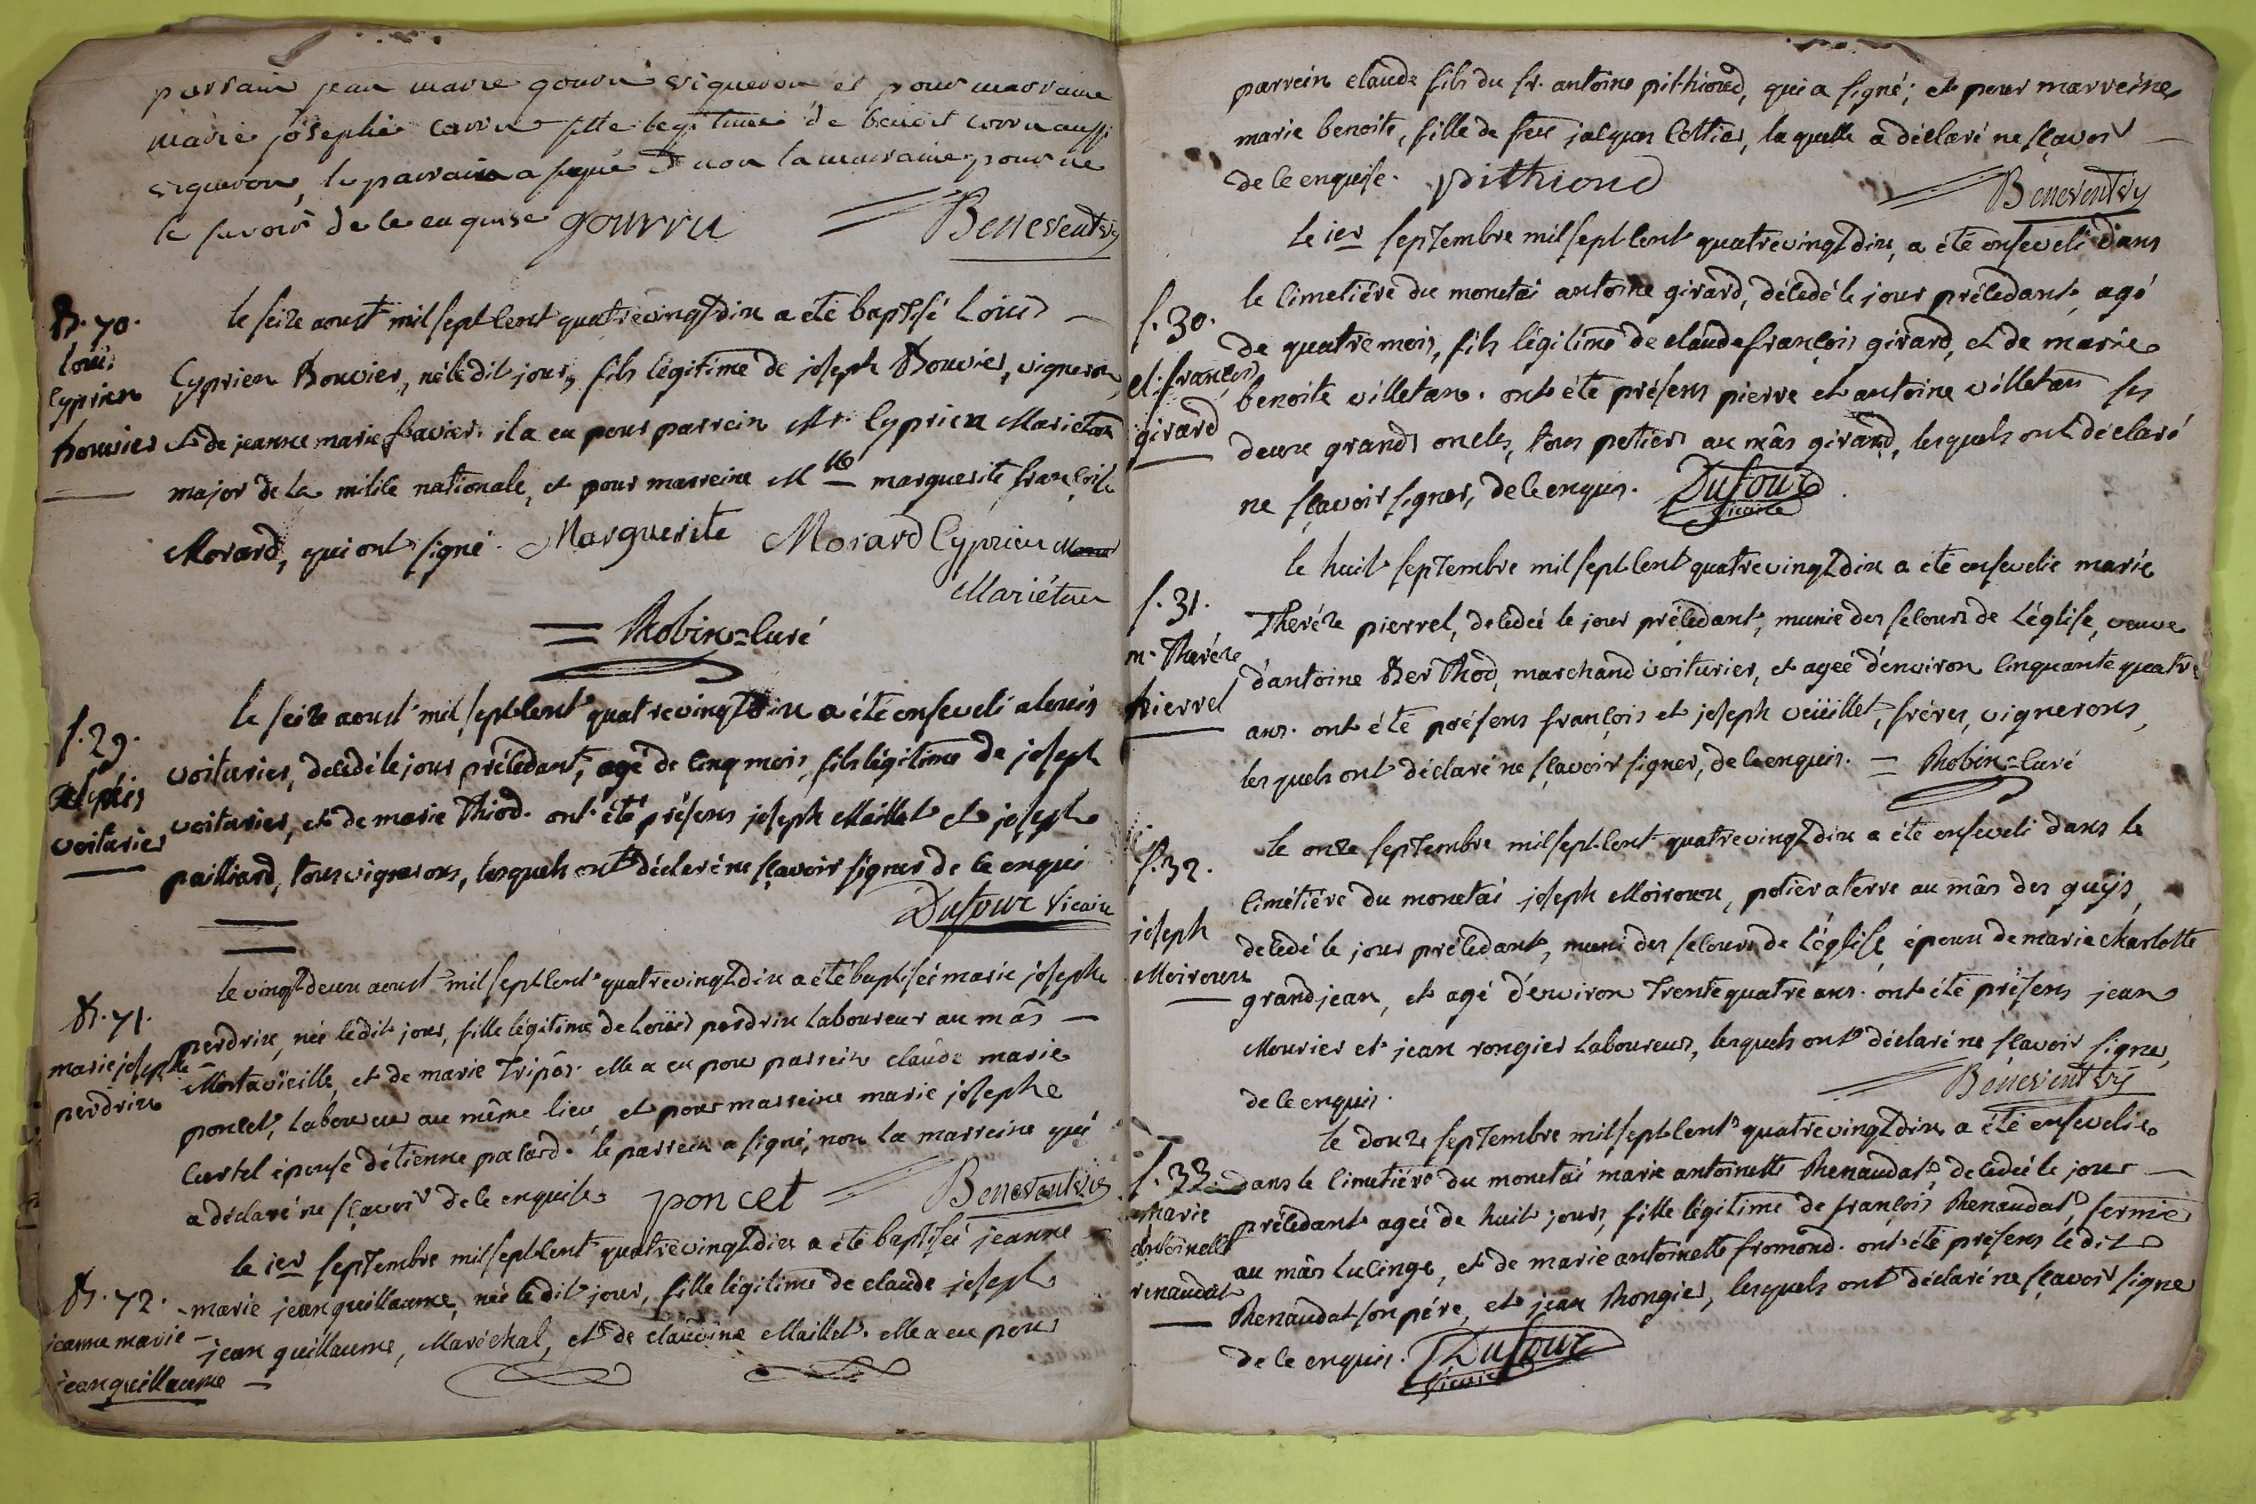 parrain jean marie gourru vigneron et pour marraine
marie josephe corru fille legitime de benoit corru aussi
vigneron, le parrain a signé & non la marraine pour ne
le savoir de ce enquise gourru Beneventvy
B. 70.
loui
Cyprien
bouvier
le seize aoust mil sept cent quatrevingt dix a été baptisé Loüis
Cyprien Bouvier, né le dit jour, fils légitime de joseph Bouvier, vigneron,
et de jeanne marie favier. il a eu pour parrein Mr. Cyprien Marietan
major de la milice nationale, et pour marreine Mlle marguerite françoise
Morard, qui ont signé. Marguerite Morard Cyprien
Mariétan
Robin=Curé
S. 29.
voiturier
le seize aoust mil sept cent quatrevingt dix a été enseveli alexis
voiturier, décédé le jour précédant, agé de cinq mois, fils légitime de joseph
voiturier, et de marie Thiod. ont été présens joseph Maillet et joseph
pailliard, tous vignerons, lesquels ont déclaré ne sçavoir signer de ce enqui
Dufour vicaire
B. 71.
marie josephe
perdrix
le vingt deux aoust mil sept cent quatrevingt dix a été baptiseé marie josephe
perdrix, née le dit jour, fille légitime de Loüis perdrix Laboureur au mâs
Mortavieille, et de marie Tripôz. elle a eu pour parrein claude marie
poncet, Laboureur au même lieu, et pour marreine marie josephe
Curtel épouse d'étienne pacard. le parrein a signé, non la marreine qui
a déclaré ne sçavoir de ce enquise poncet Beneventvy
B. 72.
jeanne marie
jeanguillaume
le 1er septembre mil sept cent quatrevingt dix a été baptiseé jeanne
marie jeanguillaume, née le dit jour, fille légitime de claude joseph
jeanguillaume, Maréchal, et de claudine Maillet. elle a eu pour
parrein claude fils du sr. antoine pithioud, qui a signé; et pour marreine
marie benoite, fille de feu jacques Cottier, laquelle a déclaré ne sçavoir
de ce enquise. pithioud Beneventvy
S. 30.
cl. françois
girard
le 1er septembre mil sept cent quatrevingt dix, a été enseveli dans
le cimetière du monetai antoine girard, décédé le jour précédant, agé
de quatre mois, fils légitime de claude françois girard, et de marie
benoite villetan. ont été présens pierre et antoine villetan ses
deux grands oncles, tous potiers au mâs girard, lesquels ont déclaré
ne sçavoir signer, de ce enquis. Dufour
vicaire
S. 31.
m. Therèze
pierrel
le huit septembre mil sept cent quatrevingt dix a été ensevelie marie
Therèze pierrel, decedeé le jour précédant, munie des secours de L'église, veuve
d'antoine Berthod, marchand voiturier, et ageé d'environ Cinquante quatre
ans. ont été présens françois et joseph veüillet, fréres, vignerons,
lesquels ont déclaré ne sçavoir signer, de ce enquis. = Robin=Curé
S. 32.
joseph
Moiroux
le onze septembre mil sept cent quatrevingt dix a été enseveli dans le
cimétiére du monetai joseph Moiroux, potier a terre au mâs des guÿs,
decedé le jour précédant, muni des secours de L'église, époux de marie charlotte
grandjean, et agé d'environ Trente quatre ans. ont été présens jean
Mourier et jean rongier Laboureurs, lesquels ont déclaré ne sçavoir signer,
de ce enquis. Beneventvy
S. 33.
marie
antoinette
renaudat
le douze septembre mil sept cent quatrevingt dix a été ensevelie
dans le cimetiére du monetai marie antoinette Renaudat, decedeé le jour
précédant ageé de huit jours, fille légitime de françois Renaudat, fermier
au mâs Lucinge, et de marie antoinette fromond. ont été présens le dit
Renaudat son pére, et jean Rongier, lesquels ont déclaré ne sçavoir signer
de ce enquis. Dufour
vicaire